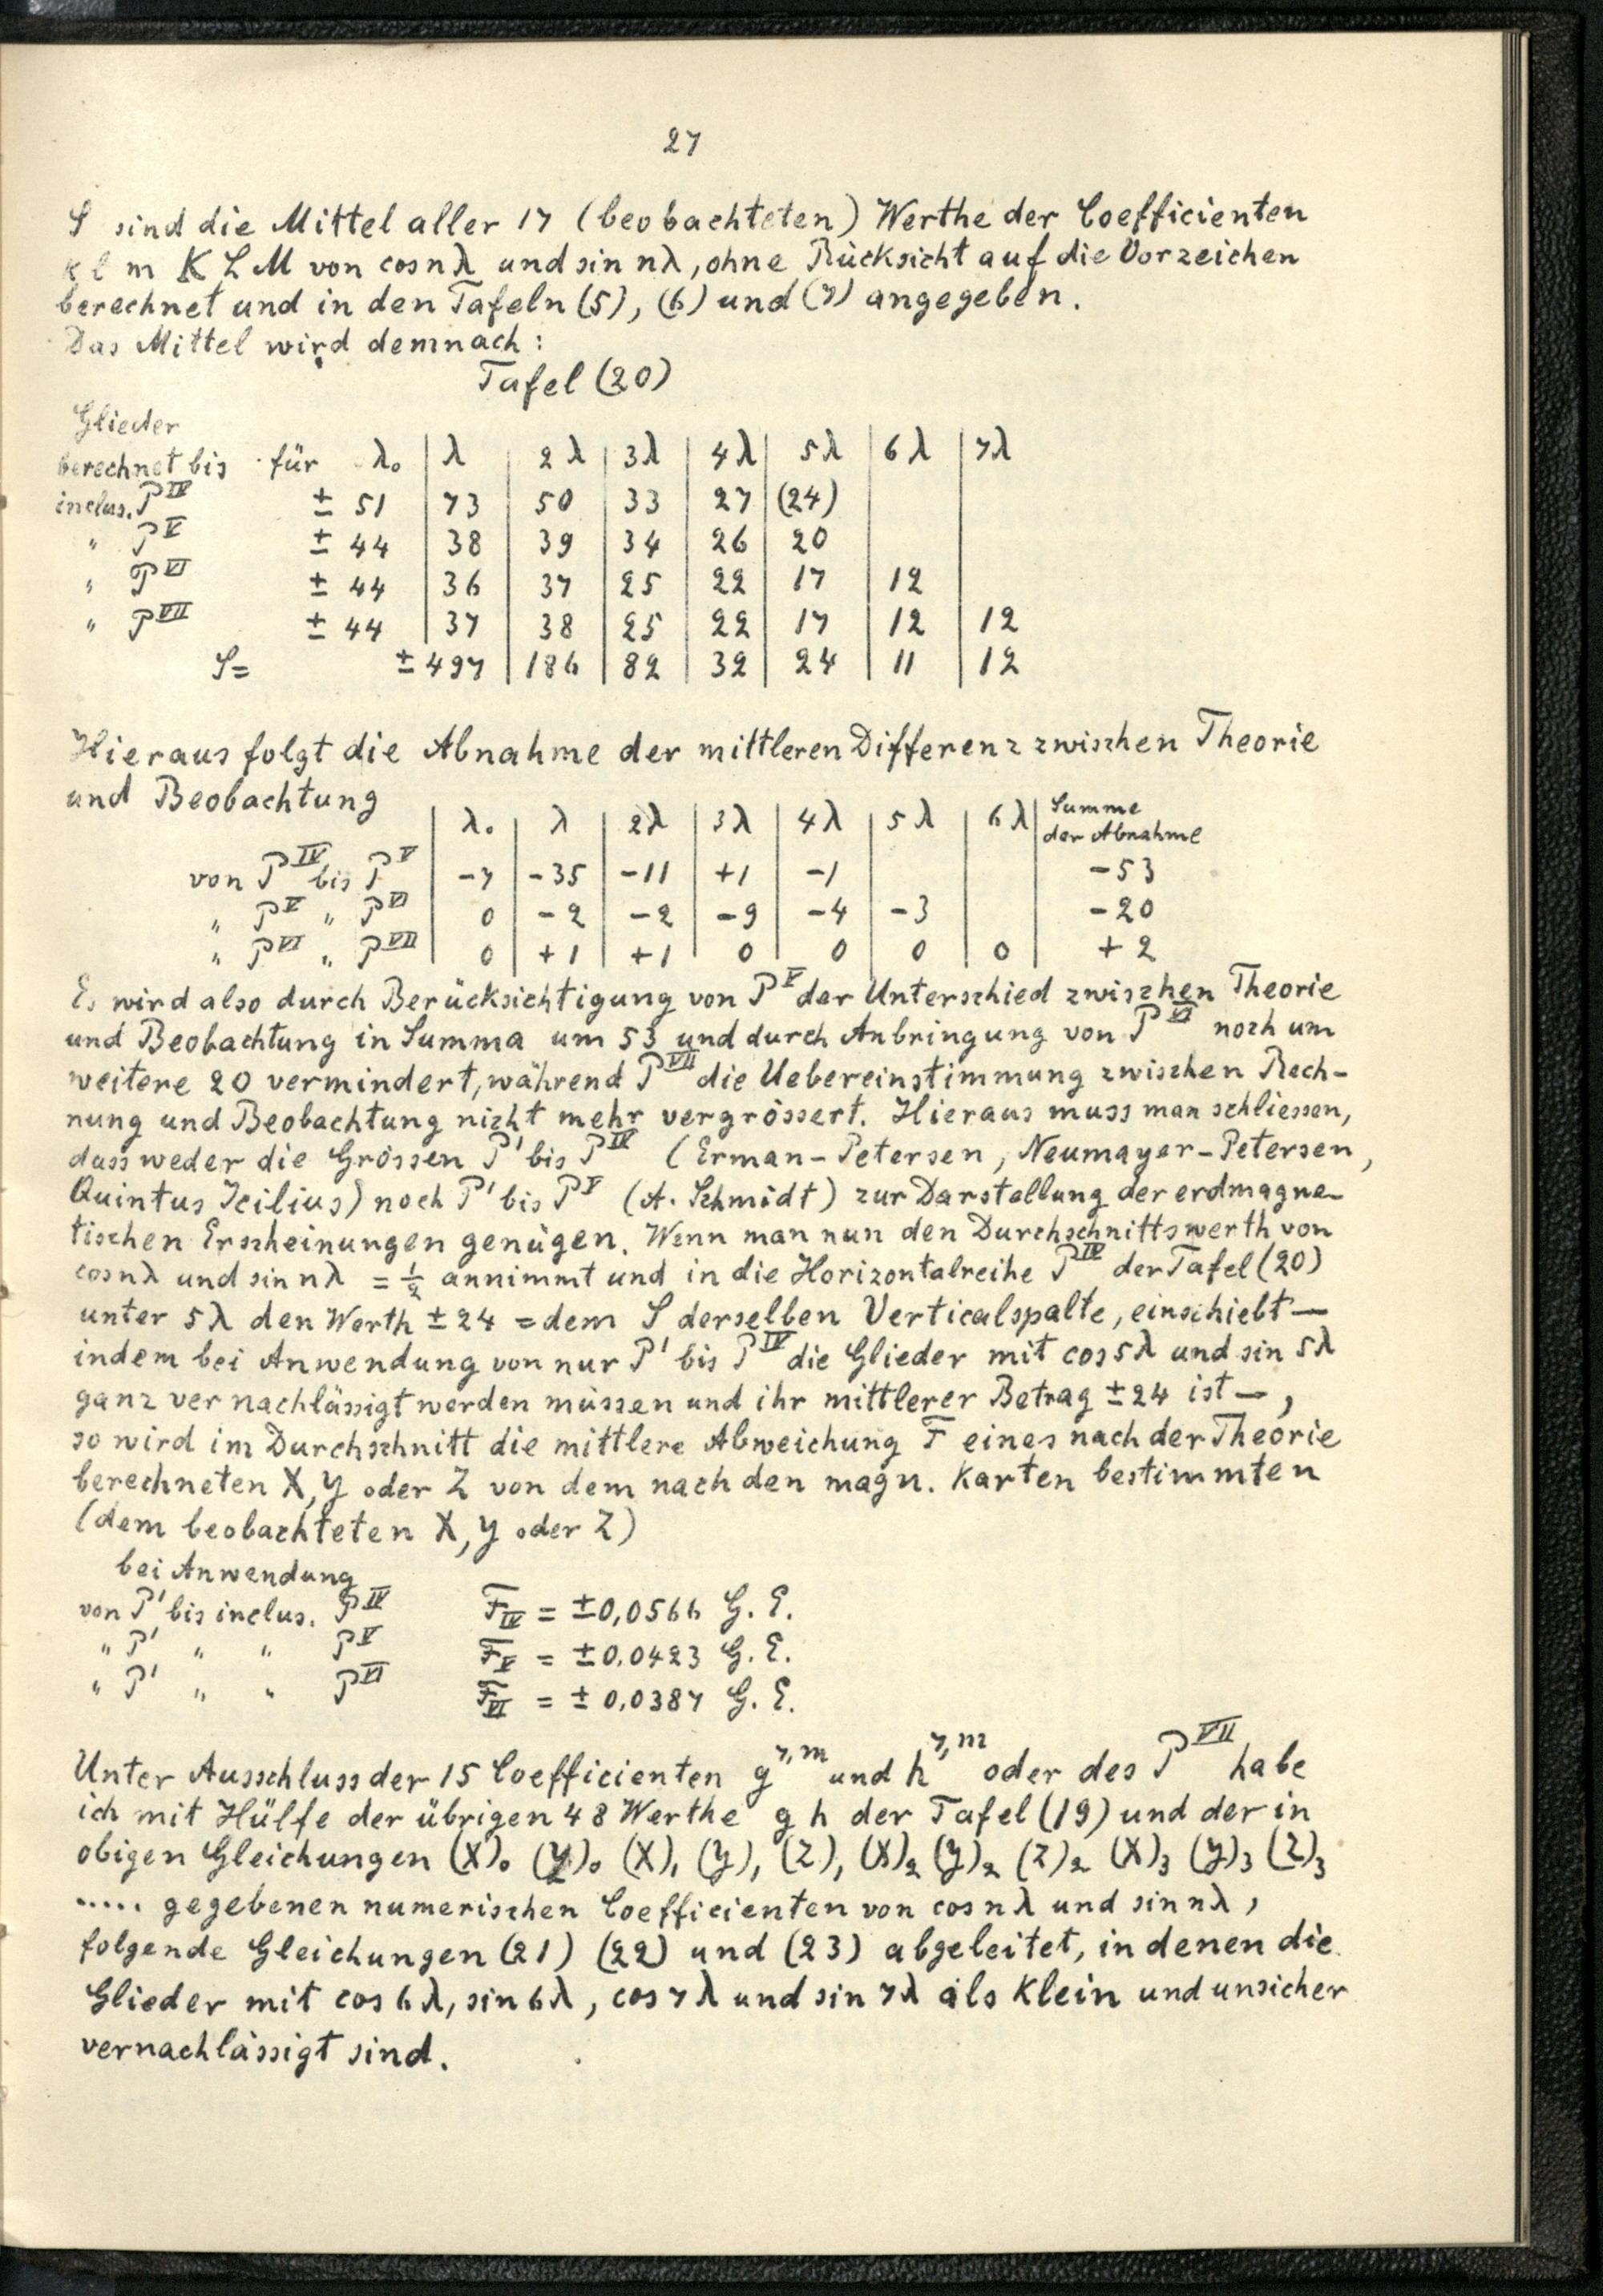 27
S sind die Mittel aller 17 (beobachteten) Werthe der Coefficienten
k l m K L M von cos nλ und sin nλ, ohne Rücksicht auf die Vorzeichen
berechnet und in den Tafeln (5), (6) und (7) angegeben.
Das Mittel wird demnach:
Tafel (20)
Glieder
berechnet bis für λ₀ | λ | 2λ | 3λ | 4λ | 5λ | 6λ | 7λ
inclus. P^IV ± 51 | 73 | 50 | 33 | 27 | (24)
" P^V ± 44 | 38 | 39 | 34 | 26 | 20
" P^VI ± 44 | 36 | 37 | 25 | 22 | 17 | 12
" P^VII ± 44 | 37 | 38 | 25 | 22 | 17 | 12 | 12
S= ± 497 | 186 | 82 | 32 | 24 | 11 | 12
Hieraus folgt die Abnahme der mittleren Differenz zwischen Theorie
und Beobachtung
λ₀ | λ | 2λ | 3λ | 4λ | 5λ | 6λ | Summe der Abnahme
von P^IV bis P^V | -7 | -35 | -11 | +1 | -1 | | | -53
" P^V " P^VI | 0 | -2 | -2 | -9 | -4 | -3 | | -20
" P^VI " P^VII | 0 | +1 | +1 | 0 | 0 | 0 | 0 | +2
Es wird also durch Berücksichtigung von P^V der Unterschied zwischen Theorie
und Beobachtung in Summa um 53 und durch Anbringung von P^VI noch um
weitere 20 vermindert, während P^VII die Uebereinstimmung zwischen Rech-
nung und Beobachtung nicht mehr vergrössert. Hieraus muss man schliessen,
dass weder die Grössen P' bis P^IV (Erman-Petersen, Neumayer-Petersen,
Quintus Icilius) noch P' bis P^V (A. Schmidt) zur Darstellung der erdmagne-
tischen Erscheinungen genügen. Wenn man nun den Durchschnittswerth von
cos nλ und sin nλ = ½ annimmt und in die Horizontalreihe P^IV der Tafel (20)
unter 5λ den Werth ± 24 = dem S derselben Verticalspalte, einschiebt —
indem bei Anwendung von nur P' bis P^IV die Glieder mit cos 5λ und sin 5λ
ganz vernachlässigt werden müssen und ihr mittlerer Betrag ± 24 ist —,
so wird im Durchschnitt die mittlere Abweichung F eines nach der Theorie
berechneten X, Y oder Z von dem nach den magn. Karten bestimmten
(dem beobachteten X, Y oder Z)
bei Anwendung
von P' bis inclus. P^IV F_IV = ±0,0566 G. E.
" P' " " P^V F_V = ±0,0423 G. E.
" P' " " P^VI F_VI = ± 0,0387 G. E.
Unter Ausschluss der 15 Coefficienten g^7,m und h^7,m oder des P^VII habe
ich mit Hülfe der übrigen 48 Werthe g h der Tafel (19) und der in
obigen Gleichungen (X)₀ (Y)₀ (X)₁ (Y)₁ (Z)₁ (X)₂ (Y)₂ (Z)₂ (X)₃ (Y)₃ (Z)₃
..... gegebenen numerischen Coefficienten von cos nλ und sin nλ,
folgende Gleichungen (21) (22) und (23) abgeleitet, in denen die
Glieder mit cos 6λ, sin 6λ, cos 7λ und sin 7λ als klein und unsicher
vernachlässigt sind.